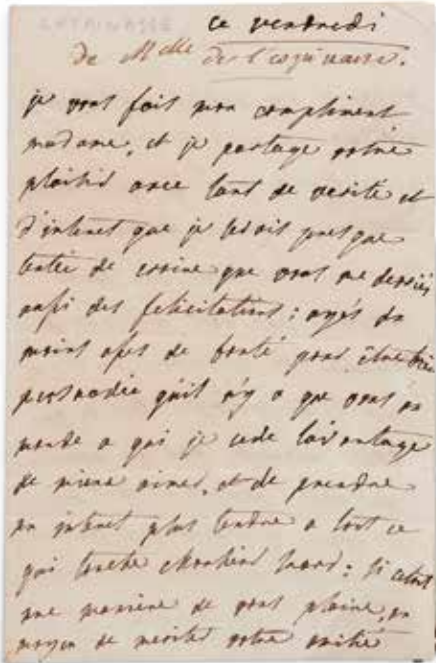 ce vendredi
de Melle de l'espinasse.
je vous fait mon compliment
madame, et je partage votre
plaisir avec tant de verité et
d'interet que je serois presque
tentée de croire que vous me devriés
aussi des felicitations : ayés du
moins assés de bonté pour être bien
persuadée qu'il n'y a que vous au
monde a qui je cede l'avantage
de mieux aimer, et de prendre
un interet plus tendre a tout ce
qui touche : si cetoit
une maniere de vous plaire, un
moyen de meriter votre amitié